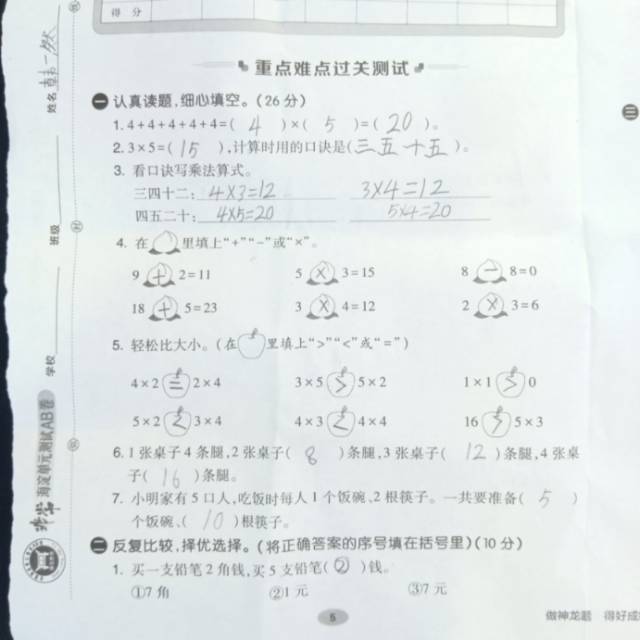 得 分
重点难点过关测试
一 认真读题,细心填空。(26分)
1. 4+4+4+4+4=( 4 )×( 5 )=( 20 )。
2. 3×5=( 15 ),计算时用的口诀是(三五十五)。
3. 看口诀写乘法算式。
三四十二: 4×3=12 3×4=12
四五二十: 4×5=20 5×4=20
4. 在 里填上“+”“-”或“×”。
9 + 2=11 5 × 3=15 8 - 8=0
18 + 5=23 3 × 4=12 2 × 3=6
5. 轻松比大小。(在 里填上“>”“<”或“=”)
4×2 = 2×4 3×5 > 5×2 1×1 > 0
5×2 < 3×4 4×3 < 4×4 16 > 5×3
6. 1张桌子4条腿,2张桌子( 8 )条腿,3张桌子( 12 )条腿,4张桌
子( 16 )条腿。
7. 小明家有5口人,吃饭时每人1个饭碗、2根筷子。一共要准备( 5 )
个饭碗、( 10 )根筷子。
二 反复比较,择优选择。(将正确答案的序号填在括号里)(10分)
1. 买一支铅笔2角钱,买5支铅笔( ② )钱。
①7角 ②1元 ③7元
5
做神龙题 得好成
二
姓名
班级
学校
海淀单元测试AB卷